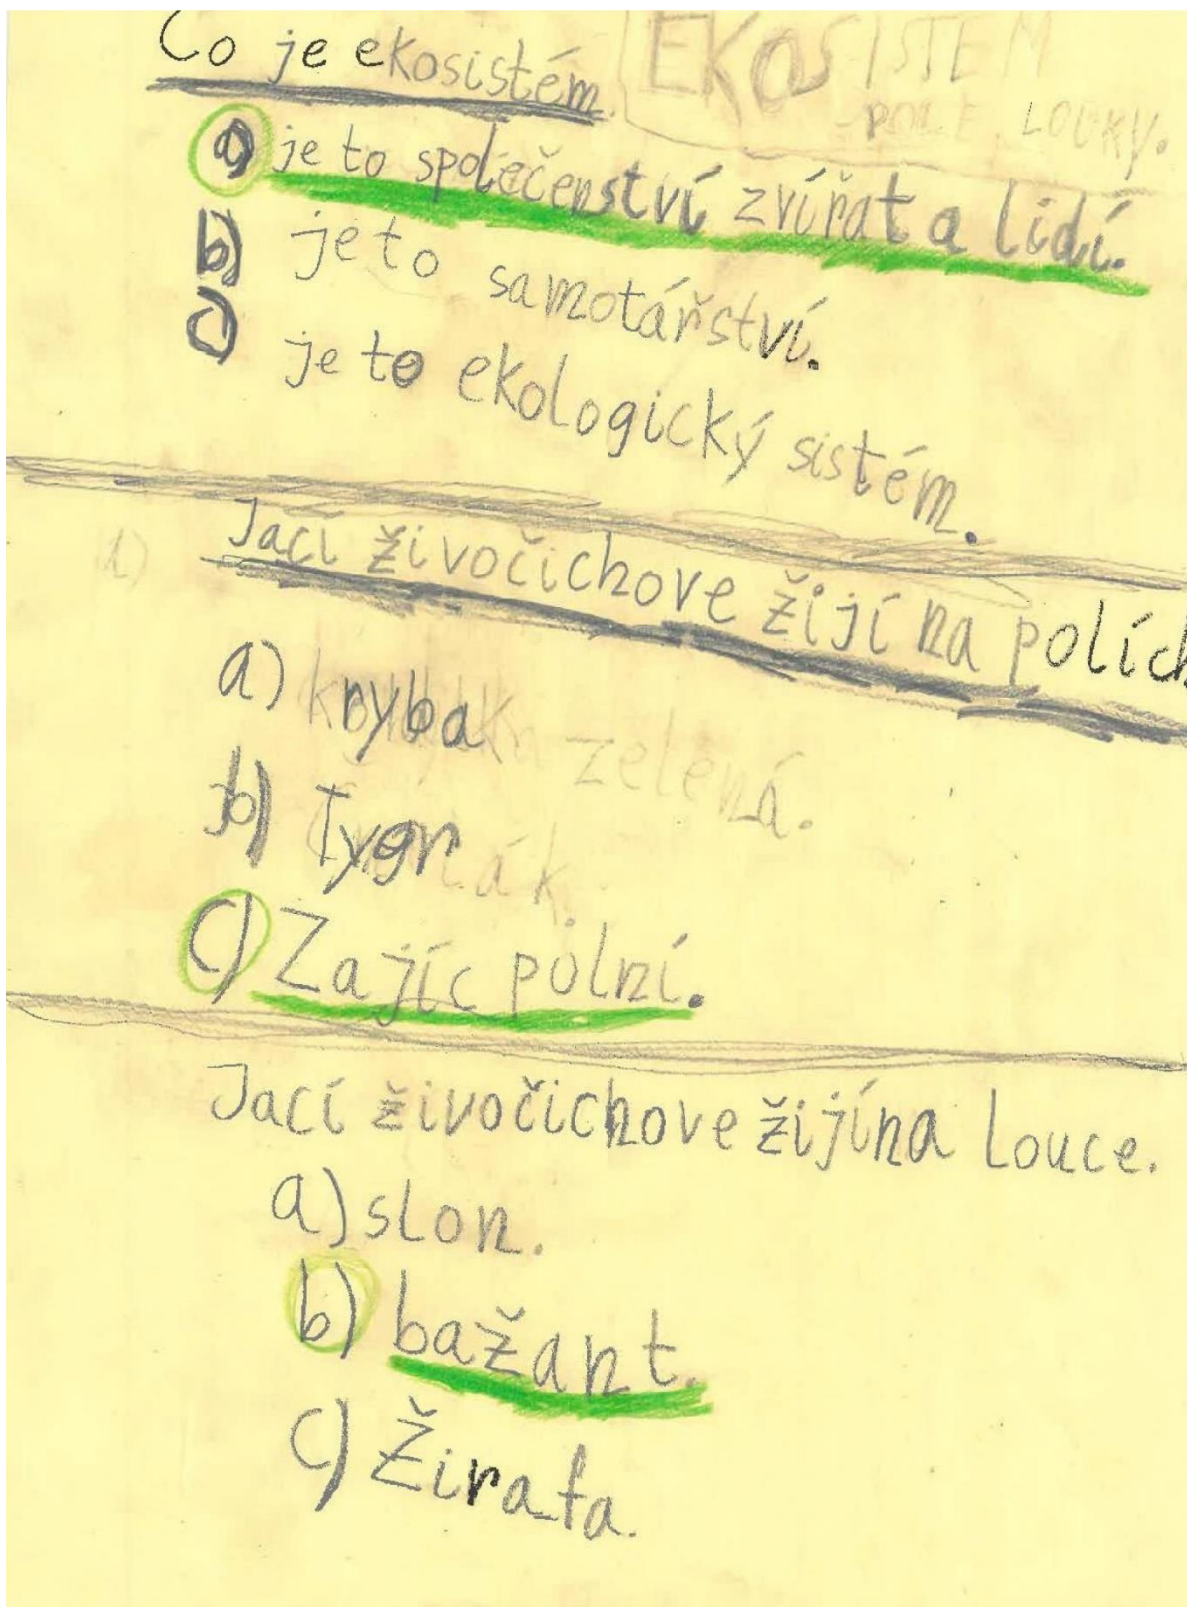 Co je ekosistém.
EKOSISTEM
POLE LOUKY.
a) je to společenství zvířat a lidí.
b) je to samotářství.
c) je to ekologický sistém.
1) Jací živočichove žijí na polích
a) ryba
zelená.
b) Tygr
c) Zajíc polní.
Jací živočichove žijí na Louce.
a) slon.
b) bažant.
c) Žirafa.